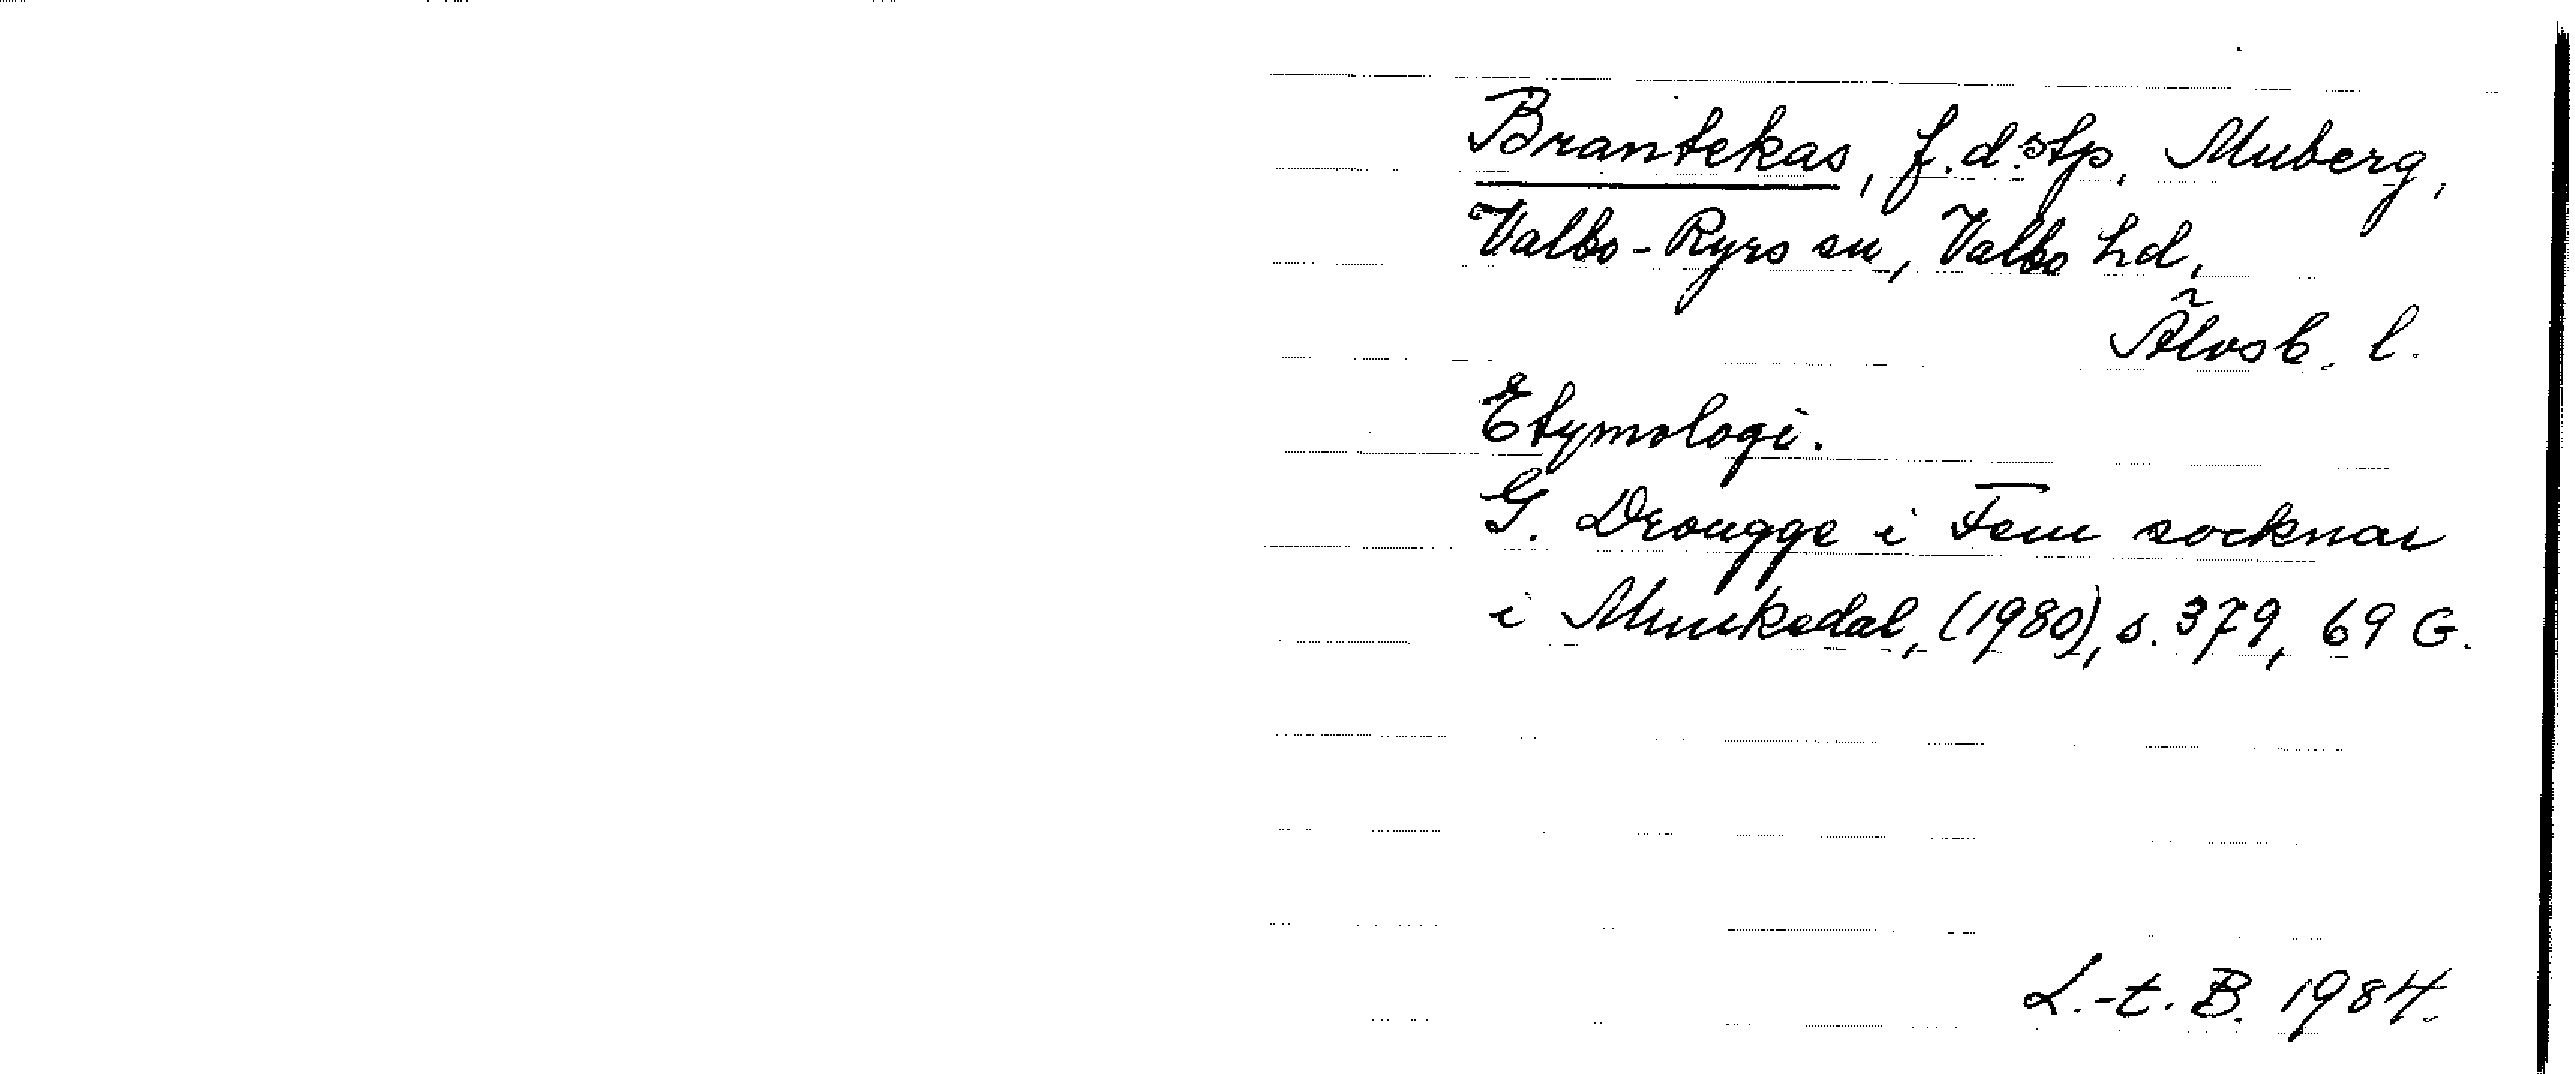 Brantekas, f.d. stp. Muberg,
Valbo-Ryrs sn, Valbo hd,
Älvsb. l.
Etymologi.
G. Drougge i Fem socknar
i Munkedal, (1980), s. 379, 69 G.
L.-t. B. 1984.